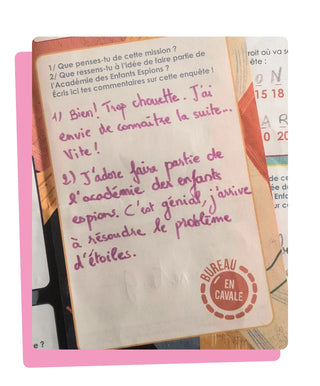 1/ Que penses-tu de cette mission ?
2/ Que ressens-tu à l'idée de faire partie de
l'Académie des Enfants Espions ?
Écris ici tes commentaires sur cette enquête !
1) Bien! Trop chouette. J'ai
envie de connaître la suite...
Vite!
2) J'adore faire partie de
l'académie des enfants
espions. C'est génial, j'arrive
à résoudre le problème
d'étoiles.
BUREAU
EN
CAVALE
roit où va s
ête :
15 18